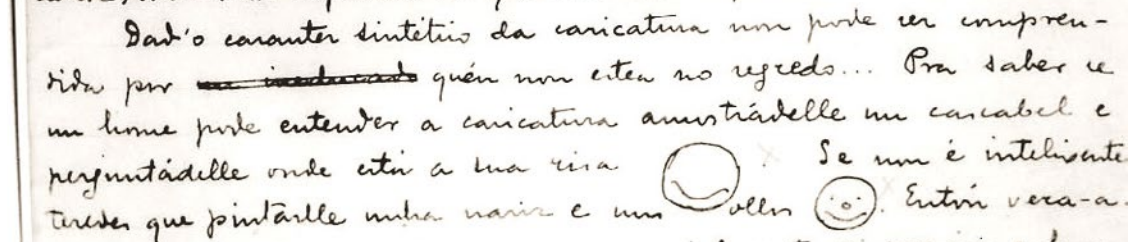 Dad'o carauter sintético da caricatura non pode ser compren-
dida por un ineducado quén non estea no segredo... Pra saber se
un home pode entender a caricatura amostrádelle un cascabel e
perguntádelle onde está a sua risa Se non é intelixente
teredes que pintarlle unha nariz e uns ollos . Entón vera-a.